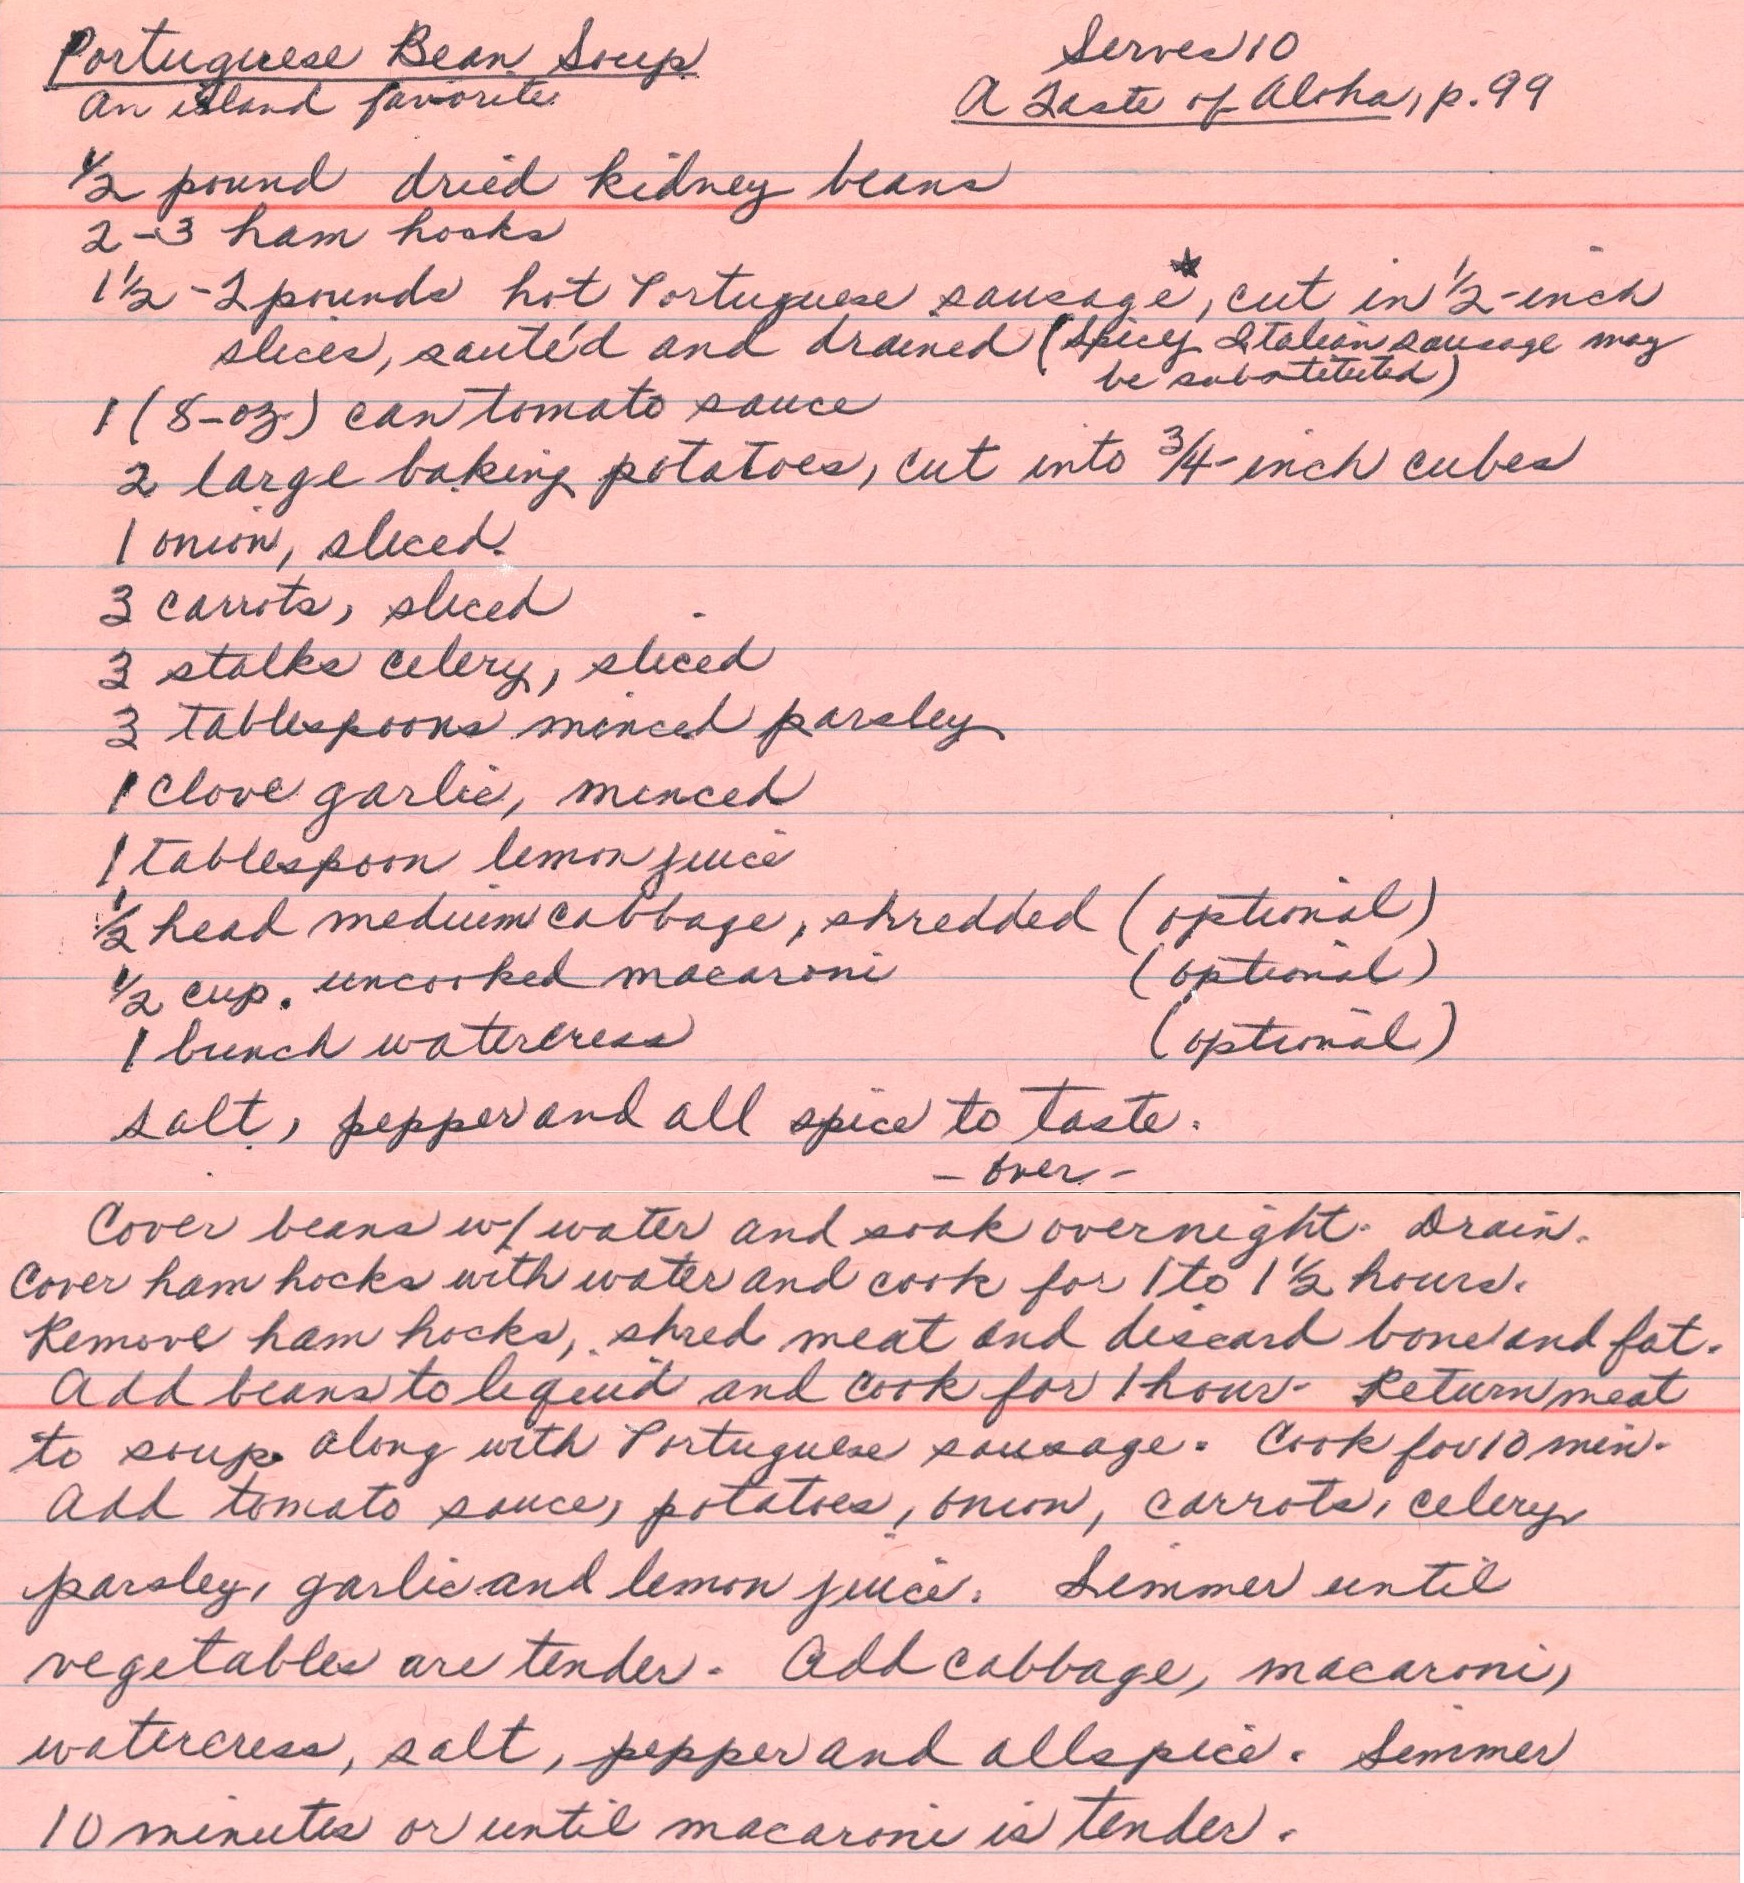 Portuguese Bean Soup
Serves 10
An island favorite
A Taste of Aloha, p. 99
1/2 pound dried kidney beans
2-3 ham hocks
1 1/2 - 2 pounds hot Portuguese sausage*, cut in 1/2-inch
slices, sauté'd and drained (Spicy Italian sausage may
be substituted)
1 (8-oz.) can tomato sauce
2 large baking potatoes, cut into 3/4-inch cubes
1 onion, sliced
3 carrots, sliced
3 stalks celery, sliced
3 tablespoons minced parsley
1 clove garlic, minced
1 tablespoon lemon juice
1/2 head medium cabbage, shredded (optional)
1/2 cup. uncooked macaroni (optional)
1 bunch watercress (optional)
salt, pepper and all spice to taste.
- over -
Cover beans w/ water and soak overnight. Drain.
Cover ham hocks with water and cook for 1 to 1 1/2 hours.
Remove ham hocks, shred meat and discard bone and fat.
Add beans to liquid and cook for 1 hour. Return meat
to soup along with Portuguese sausage. Cook for 10 min.
Add tomato sauce, potatoes, onion, carrots, celery
parsley, garlic and lemon juice. Simmer until
vegetables are tender. Add cabbage, macaroni,
watercress, salt, pepper and allspice. Simmer
10 minutes or until macaroni is tender.